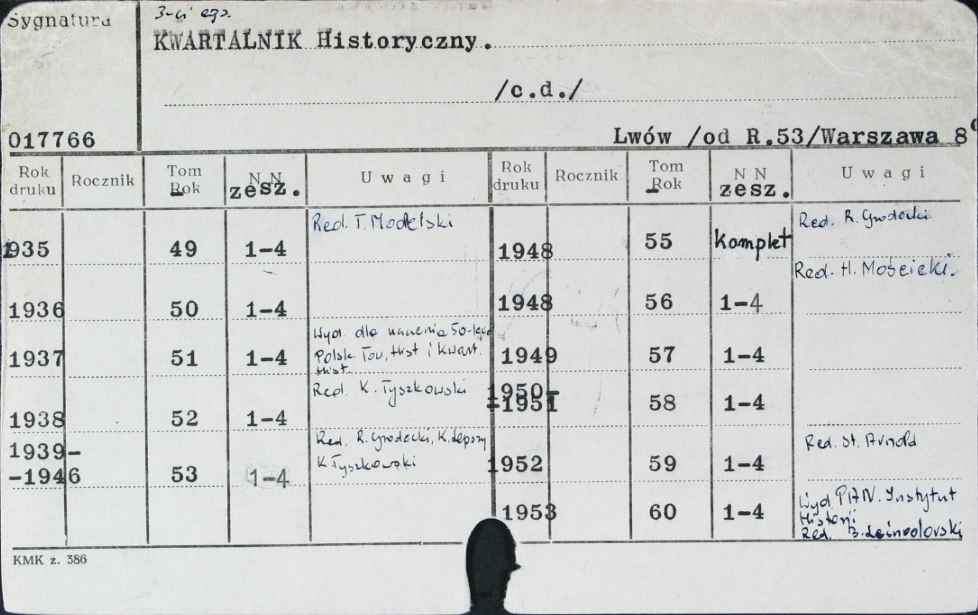 Sygnatura
3-ci egz.
KWARTALNIK Historyczny.
/c.d./
017766
Lwów /od R.53/Warszawa 8°
Rok druku Rocznik Tom Rok N N zesz. Uwagi Rok druku Rocznik Tom Rok N N zesz. Uwagi
1935 49 1-4 Red. T. Modelski 1948 55 Komplet Red. R. Grodecki
1936 50 1-4 1948 56 1-4 Red. H. Mościcki.
1937 51 1-4 Wyd. dla uczczenia 50-lecia 1949 57 1-4
Polsk. Tow. Hist i Kwart.
Hist.
1938 52 1-4 Red. K. Tyszkowski 1950-
-1951 58 1-4
1939-
-1946 53 1-4 Red. R. Grodecki, K. Lepszy 1952 59 1-4 Red. St. Arnold
K Tyszkowski
1953 60 1-4 Wyd PAN. Instytut
Historii
Red. B. Leśnodorski
KMK z. 386